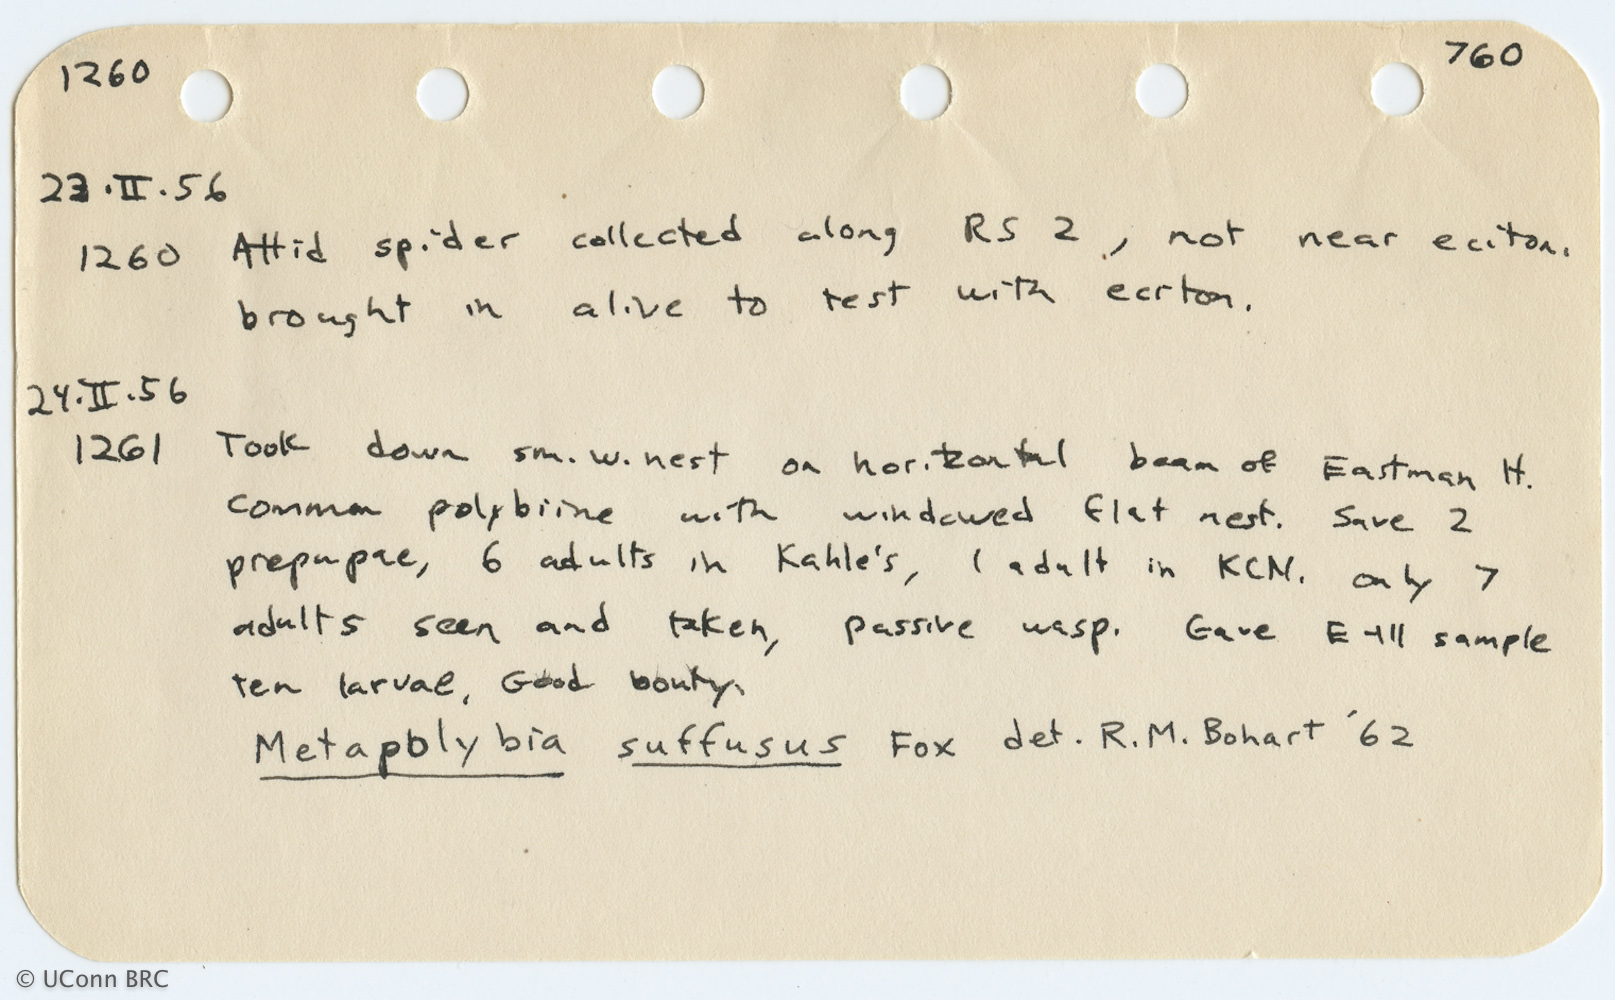 1260 760
23.II.56
1260 Attid spider collected along RS 2, not near eciton.
brought in alive to test with eciton.
24.II.56
1261 Took down sm. w. nest on horizontal beam of Eastman H.
Common polybiine with windowed flat nest. Save 2
prepupae, 6 adults in Kahle's, 1 adult in KCN. only 7
adults seen and taken, passive wasp. Gave E-111 sample
ten larvae. Good bouty.
Metapolybia suffusus Fox det. R.M. Bohart '62
© UConn BRC